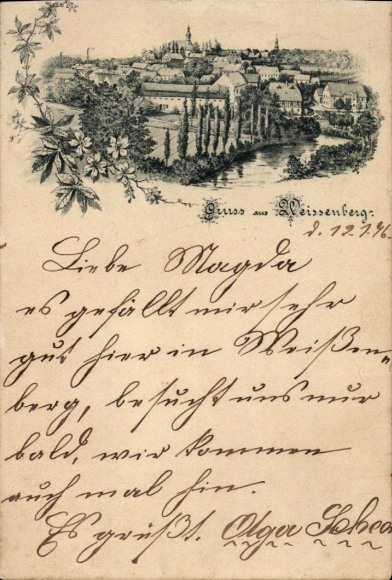 Gruss aus Weissenberg.
d. 12.7.96.
Liebe Magda
es gefällt mir sehr
gut hier in Weißen-
berg, besucht uns nur
bald, wir kommen
auch mal hin.
Es grüßt. Olga